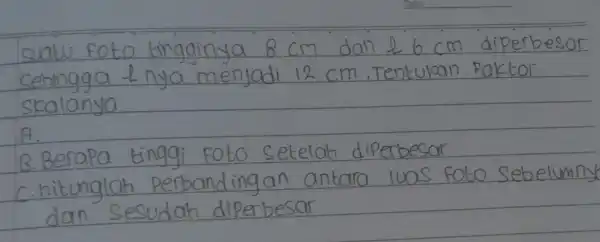 Suatu foto tingginya 8 cm dan l 6 cm diperbesar
sehingga l nya menjadi 12 cm. Tentukan Faktor
skalanya
A.
B. Berapa tinggi foto setelah diperbesar
C. hitunglah perbandingan antara luas foto sebelumnya
dan sesudah diperbesar